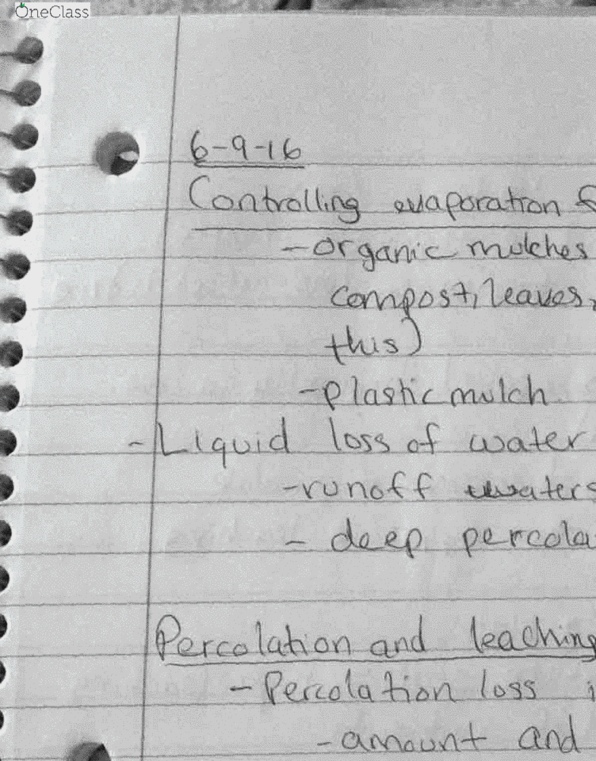 OneClass
6-9-16
Controlling evaporation
-organic mulches
compost, leaves,
this)
-plastic mulch
-Liquid loss of water
-runoff waters
- deep percola
Percolation and leaching
-Percolation loss i
-amount and